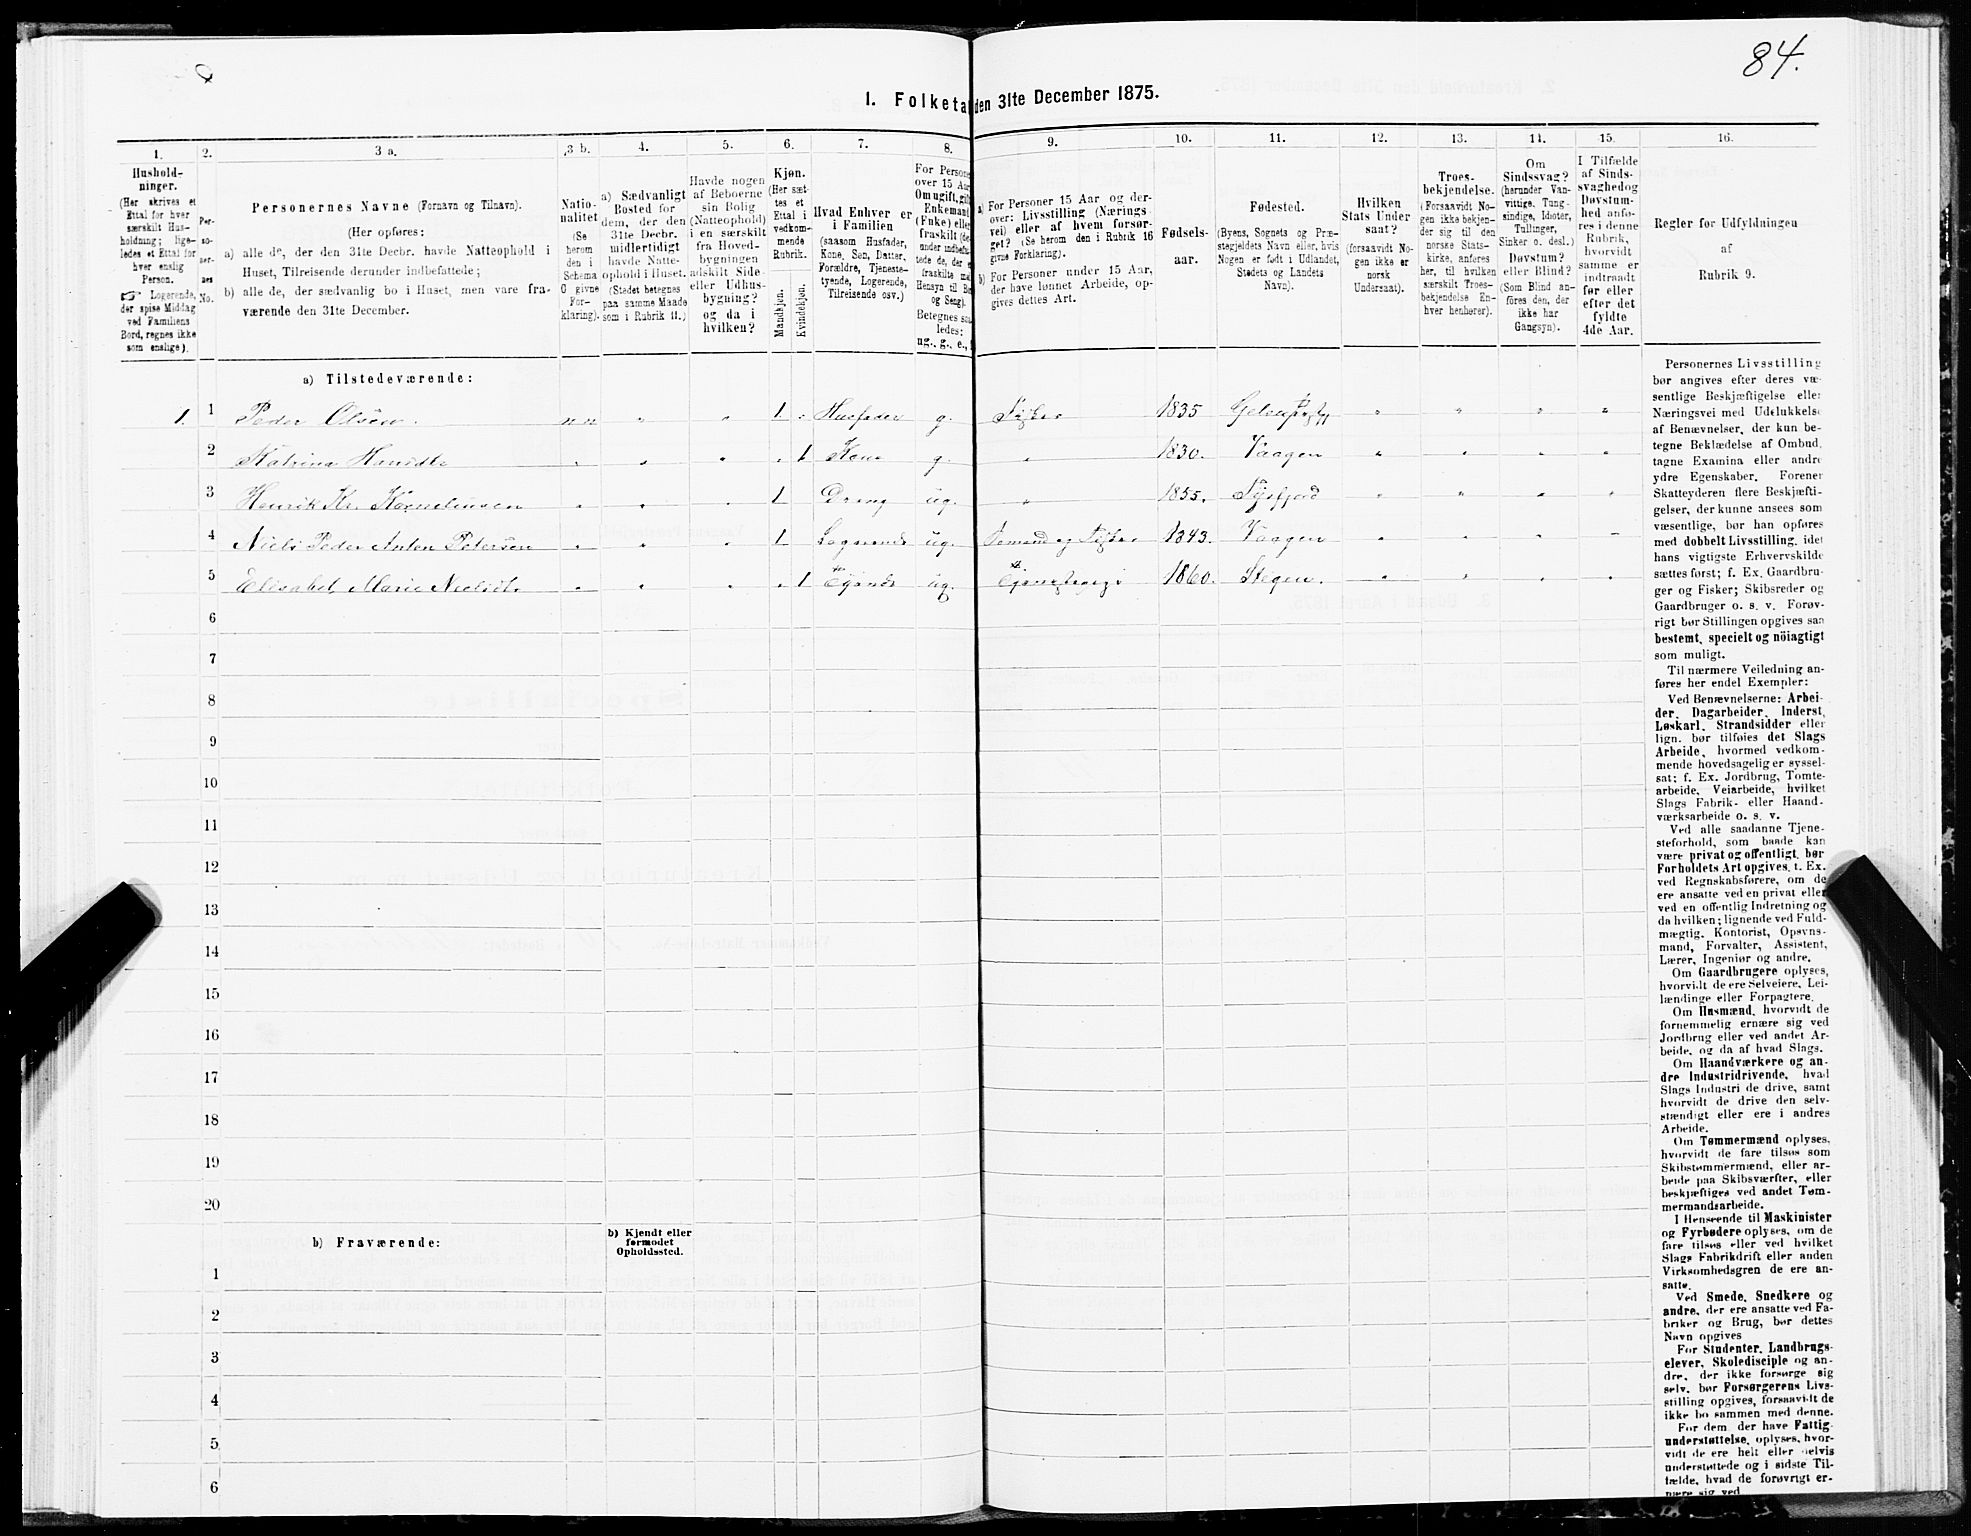 84.
1. Folketal den 31te December 1875.
1. 2. 3 a. 3 b. 4. 5. 6. 7. 8. 9. 10. 11. 12. 13. 14. 15. 16.
Hushold-
ninger.
(Her skrives et
Ettal for hver
særskilt Hus-
holdning; lige-
ledes et Ettal for
hver enslig
Person.
☞ Logerende,
der spise Middag
ved Familiens
Bord, regnes ikke
som enslige).
Per-
so-
ner-
nes
No.
Personernes Navne (Fornavn og Tilnavn).
(Her opføres:
a) alle de, der den 31te Decbr. havde Natteophold i
Huset, Tilreisende derunder indbefattede;
b) alle de, der sædvanlig bo i Huset, men vare fra-
værende den 31te December.
Natio-
nalitet
(Se
herom
den i
Schema
G givne
For-
klaring).
a) Sædvanligt
Bosted for
dem, der den
31te Decbr.
midlertidigt
havde Natte-
ophold i Huset.
(Stedet betegnes
paa samme Maade
som i Rubrik 11.)
Havde nogen
af Beboerne
sin Bolig
(Natteophold)
i en særskilt
fra Hoved-
bygningen
adskilt Side-
eller Udhus-
bygning?
og da i
hvilken?
Kjøn.
(Her sæt-
tes et
Ettal i
vedkom-
mende
Rubrik.
Mandkjøn.
Kvindekjøn.
Hvad Enhver er
i Familien
(saasom Husfader,
Kone, Søn, Datter,
Forældre, Tjeneste-
tyende, Logerende,
Tilreisende osv.)
For Persone
over 15 Aar
Om ugift, gift
Enkemand
(Enke) eller
fraskilt
Betegnes saa
ledes:
ug., g., e.,
a) For Personer 15 Aar og der-
over: Livsstilling (Nærings-
vei) eller af hvem forsør-
get? (Se herom den i Rubrik 16
givne Forklaring).
b) For Personer under 15 Aar,
der have lønnet Arbeide, op-
gives dettes Art.
Fødsels-
aar.
Fødested.
(Byens, Sognets og Præ-
stegjeldets Navn eller, hvis
Nogen er født i Udlandet,
Stedets og Landets
Navn).
Hvilken
Stats Under
saat?
(forsaavidt No-
gen ikke er
norsk
Undersaat).
Troes-
bekjendelse.
(Forsaavidt No-
gen ikke bekjen-
der sig til den
norske Stats-
kirke, anføres
her, til hvilken
særskilt Troes-
bekjendelse En-
hver henhører).
Om
Sindssvag?
(herunder Van-
vittige, Tung-
sindige, Idioter,
Tullinger,
Sinker o. desl.)
Døvstum?
eller Blind?
(Som Blind an-
føres den, der
ikke har
Gangsyn).
I Tilfælde
af Sinds-
svaghedog
Døvstum-
hed anfø-
res i denne
Rubrik,
hvorvidt
samme er
indtraadt
før eller
efter det
fyldte
4de Aar.
Regler for Udfyldningen
af
Rubrik 9.
a) Tilstedeværende:
1. 1 Peder Olsen. n n 1 Husfader g. Fisker 1835
2 Katrina Hansdtr 1 Kone g. " 1830. Vaagen
3 Henrik Kr. Korneliussen 1 Dreng ug. " 1855. Tysfjord
4 Niels Peder Anton Petersen 1 Logerende ug. Jomand og Fisker 1843. Vaagen
5 Elisabet Marie Nielsdtr 1 ug. 1860. Stegen.
6
7
8
9
10
11
12
13
14
15
16
17
18
19
20
b) Fraværende:
b) Kjendt eller
formodet
Opholdssted.
1
2
3
4
5
6
Personernes Livsstilling
bør angives efter deres væ-
sentlige Beskjæftigelse eller
Næringsvei med Udelukkelse
af Benævnelser, der kun be-
tegne Beklædelse af Ombud,
tagne Examina eller andre
ydre Egenskaber. Forener
Skatteyderen flere Beskjæfti-
gelser, der kunne ansees som
væsentlige, bør han opføres
med dobbelt Livsstilling, idet
hans vigtigste Erhvervskilde
sættes først; f. Ex. Gaardbru-
ger og Fisker; Skibsreder og
Gaardbruger o. s. v. Forøv-
rigt bør Stillingen opgives saa
bestemt, specielt og nöiagtigt
som muligt.
Til nærmere Veiledning an-
føres her endel Exempler:
Ved Benævnelserne: Arbei-
der, Dagarbeider, Inderst,
Løskarl, Strandsidder eller
lign. bør tilføies det Slags
Arbeide, hvormed vedkom-
mende hovedsagelig er syssel-
sat; f. Ex. Jordbrug, Tomte-
arbeide, Veiarbeide, hvilket
Slags Fabrik- eller Haand-
værksarbeide o. s. v.
Ved alle saadanne Tjene-
steforhold, som baade kan
være privat og offentligt, bør
Forholdets Art opgives, t. Ex.
ved Regnskabsførere, om de
ere ansatte ved en privat eller
ved en offentlig Indretning og
da hvilken; lignende ved Fuld-
mægtig, Kontorist, Opsyns-
mand, Forvalter, Assistent,
Lærer, Ingeniør og andre.
Om Gaardbrugere oplyses,
hvorvidt de ere Selveiere, Lei-
lændinge eller Forpagtere.
Om Husmænd, hvorvidt de
fornemmelig ernære sig ved
Jordbrug eller ved andet Ar-
beide, og da af hvad Slags.
Om Haandværkere og an-
dre Industridrivende, hvad
Slags Industri de drive, samt
hvorvidt de drive den selv-
stændigt eller ere i andres
Arbeide.
Om Tømmermænd oplyses,
hvorvidt de fare tilsøs som
Skibstømmermænd, eller ar-
beide paa Skibsværfter, eller
beskjæftiges ved andet Tøm-
mermandsarbeide.
I Henseende til Maskinister
og Fyrbødere oplyses, om de
fare tilsøs eller ved hvilket
Slags Fabrikdrift eller anden
Virksomhedsgren de ere an-
satte.
Ved Smede, Snedkere og
andre, der ere ansatte ved Fa-
briker og Brug, bør dettes
Navn opgives
For Studenter, Landbrugs-
elever, Skoledisciple og an-
dre, der ikke forsørge sig
selv, bør Forsørgerens Livs-
stilling opgives, forsaavidt de
ikke bo sammen med denne.
For dem, der have Fattig-
understøttelse, oplyses, hvor-
vidt de ere helt eller delvis
understøttede og i sidste Til-
fælde, hvad de forøvrigt er-
nære sig ved.